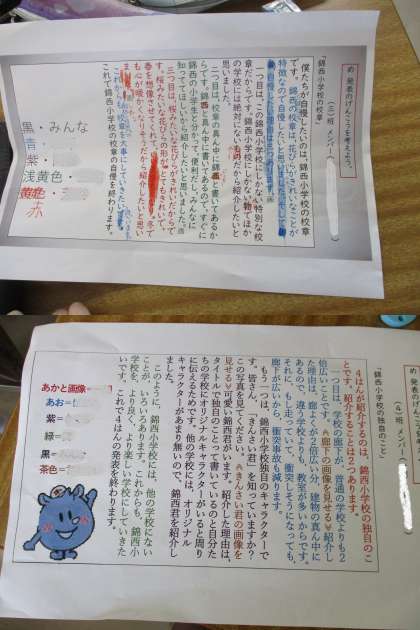 め 発表のげんこうを考えよう。
(三)班 メンバー(
「錦西小学校の校章」
僕たちが自慢したいのは、錦西小学校の校章
です。錦西の校章は、花びらがきれいなことが
特徴なので自慢したいと思いました。そして
自慢したい理由は三つあります。
一つ目は、この錦西小学校にしかない特別な校
章だからです。錦西小学校にしかない物でほか
の学校には絶対にないものだから紹介したいと
思いました。
二つ目は、校章の真ん中に錦西と書いてあるか
らです。錦西と真ん中に書いてあるので、すぐに
錦西の小学生と分かり、便利だし、みんなに
知ってほしいから紹介したいと思いました。
三つ目は、桜みたいな花びらがきれいだからで
す。桜みたいな花びらの形がとてもきれいで、
春を想像させてくれて、冬で
も心が暖かくなりそうだから紹介したいと思い
ました。
これからも校章を大事にしていきたい
これで錦西小学校の校章の自慢を終わります。
黒・みんな
青・
紫・
浅黄色・
黄色・
赤
め 発表のげんこうを考えよう。
(4)班 メンバー(
「錦西小学校の独自のこと」
4はんが紹介するのは、錦西小学校の独自のこ
とです。紹介することは2つあります。
一つ目は、学校の廊下が、普通の学校よりも2
倍広いことです。≪廊下の画像を見せる≫紹介し
た理由は、廊下が2倍広い分、建物の真ん中に
あるので、違う学校よりも、教室が多いからです。
それに、もし走っていて、衝突しそうになっても、
廊下が広いから、衝突事故も減ります。
もう一つは、錦西小学校独自のキャラクターで
す。皆さん、きんさい君を知っていますか?
この写真を見てください≪きんさい君の画像を
見せる≫可愛い錦西君がいます。紹介した理由は、
タイトルで独自のことって書いているのと自分た
ちの学校にオリジナルキャラクターがいると周り
に伝えるためです。他の学校には、オリジナル
キャラクターがあまり無いので、錦西君を紹介し
ました。
このように、錦西小学校には、他の学校にない
ことが、いろいろあります。これからも、錦西小
学校を、より良く、より楽しい学校にしていきた
いです。これで4はんの発表を終わります。
あかと画像=
あお=
紫=
緑=
黒=
茶色=